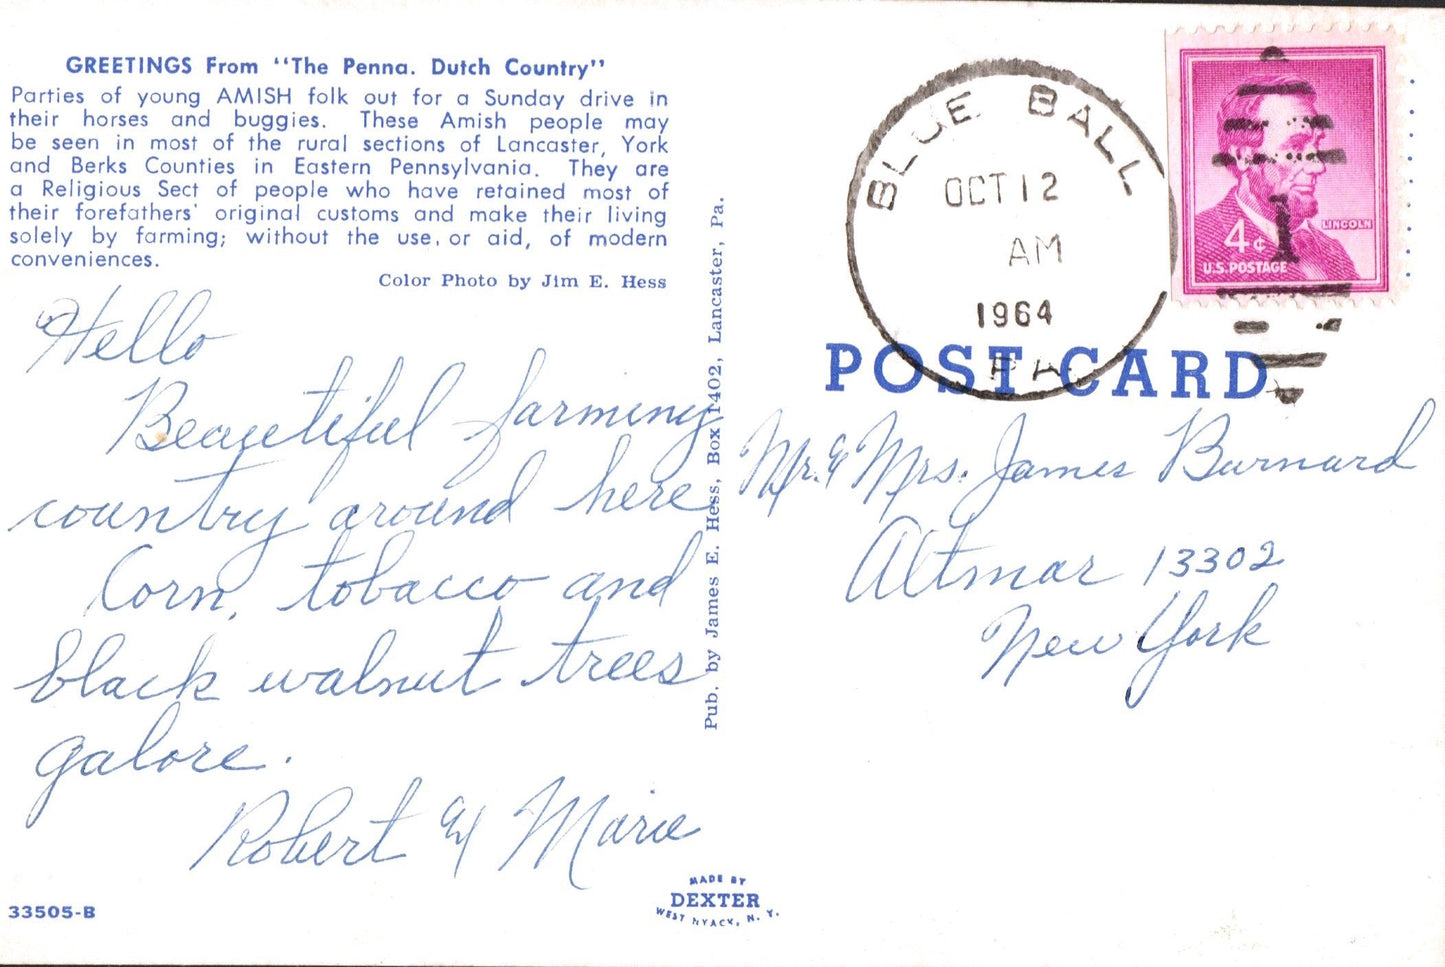 GREETINGS From "The Penna. Dutch Country"
Parties of young AMISH folk out for a Sunday drive in
their horses and buggies. These Amish people may
be seen in most of the rural sections of Lancaster, York
and Berks Counties in Eastern Pennsylvania. They are
a Religious Sect of people who have retained most of
their forefathers' original customs and make their living
solely by farming; without the use, or aid, of modern
conveniences.
Color Photo by Jim E. Hess
Hello
Beautiful farming
country around here
Corn, tobacco and
black walnut trees
galore.
Robert & Marie
33505-B
Pub. by James E. Hess, Box 1402, Lancaster, Pa.
MADE BY
DEXTER
WEST NYACK, N. Y.
BLUE BALL
OCT 12
AM
1964
PA.
LINCOLN
4¢
U.S. POSTAGE
1
POST CARD
Mr. & Mrs. James Burnard
Altmar 13302
New York